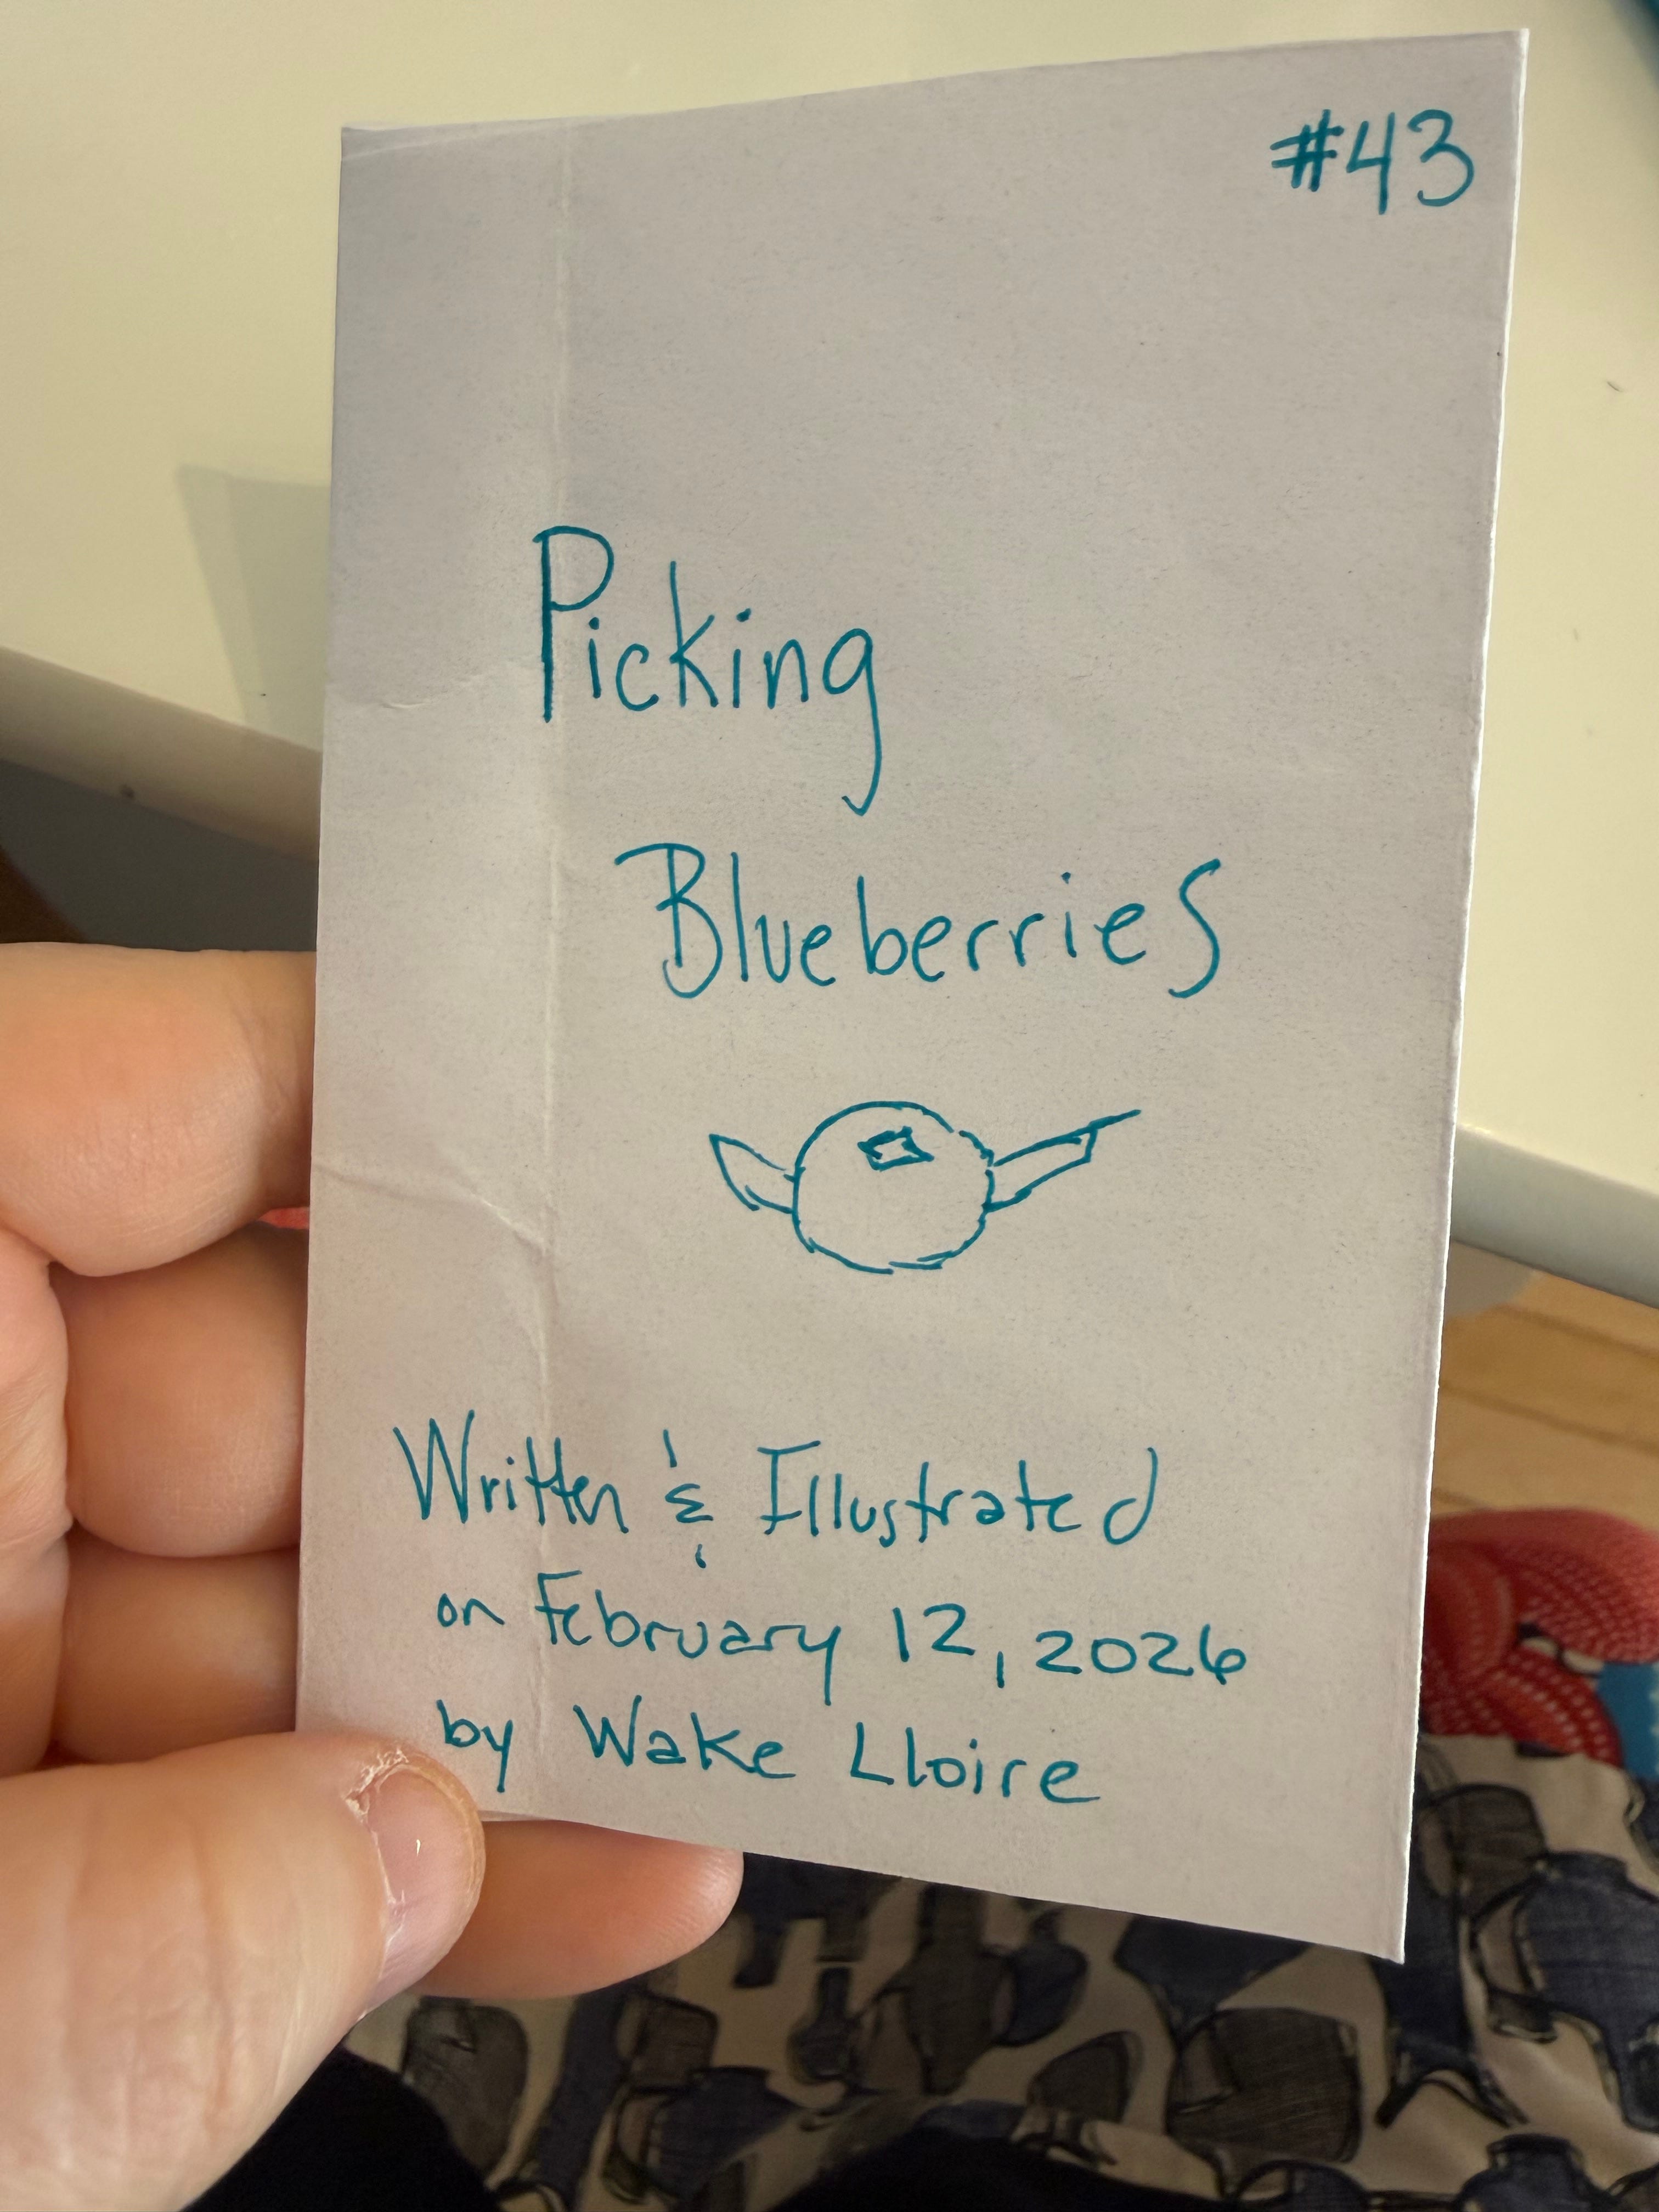 #43
Picking
Blueberries
Written & Illustrated
on February 12, 2026
by Wake Lloire